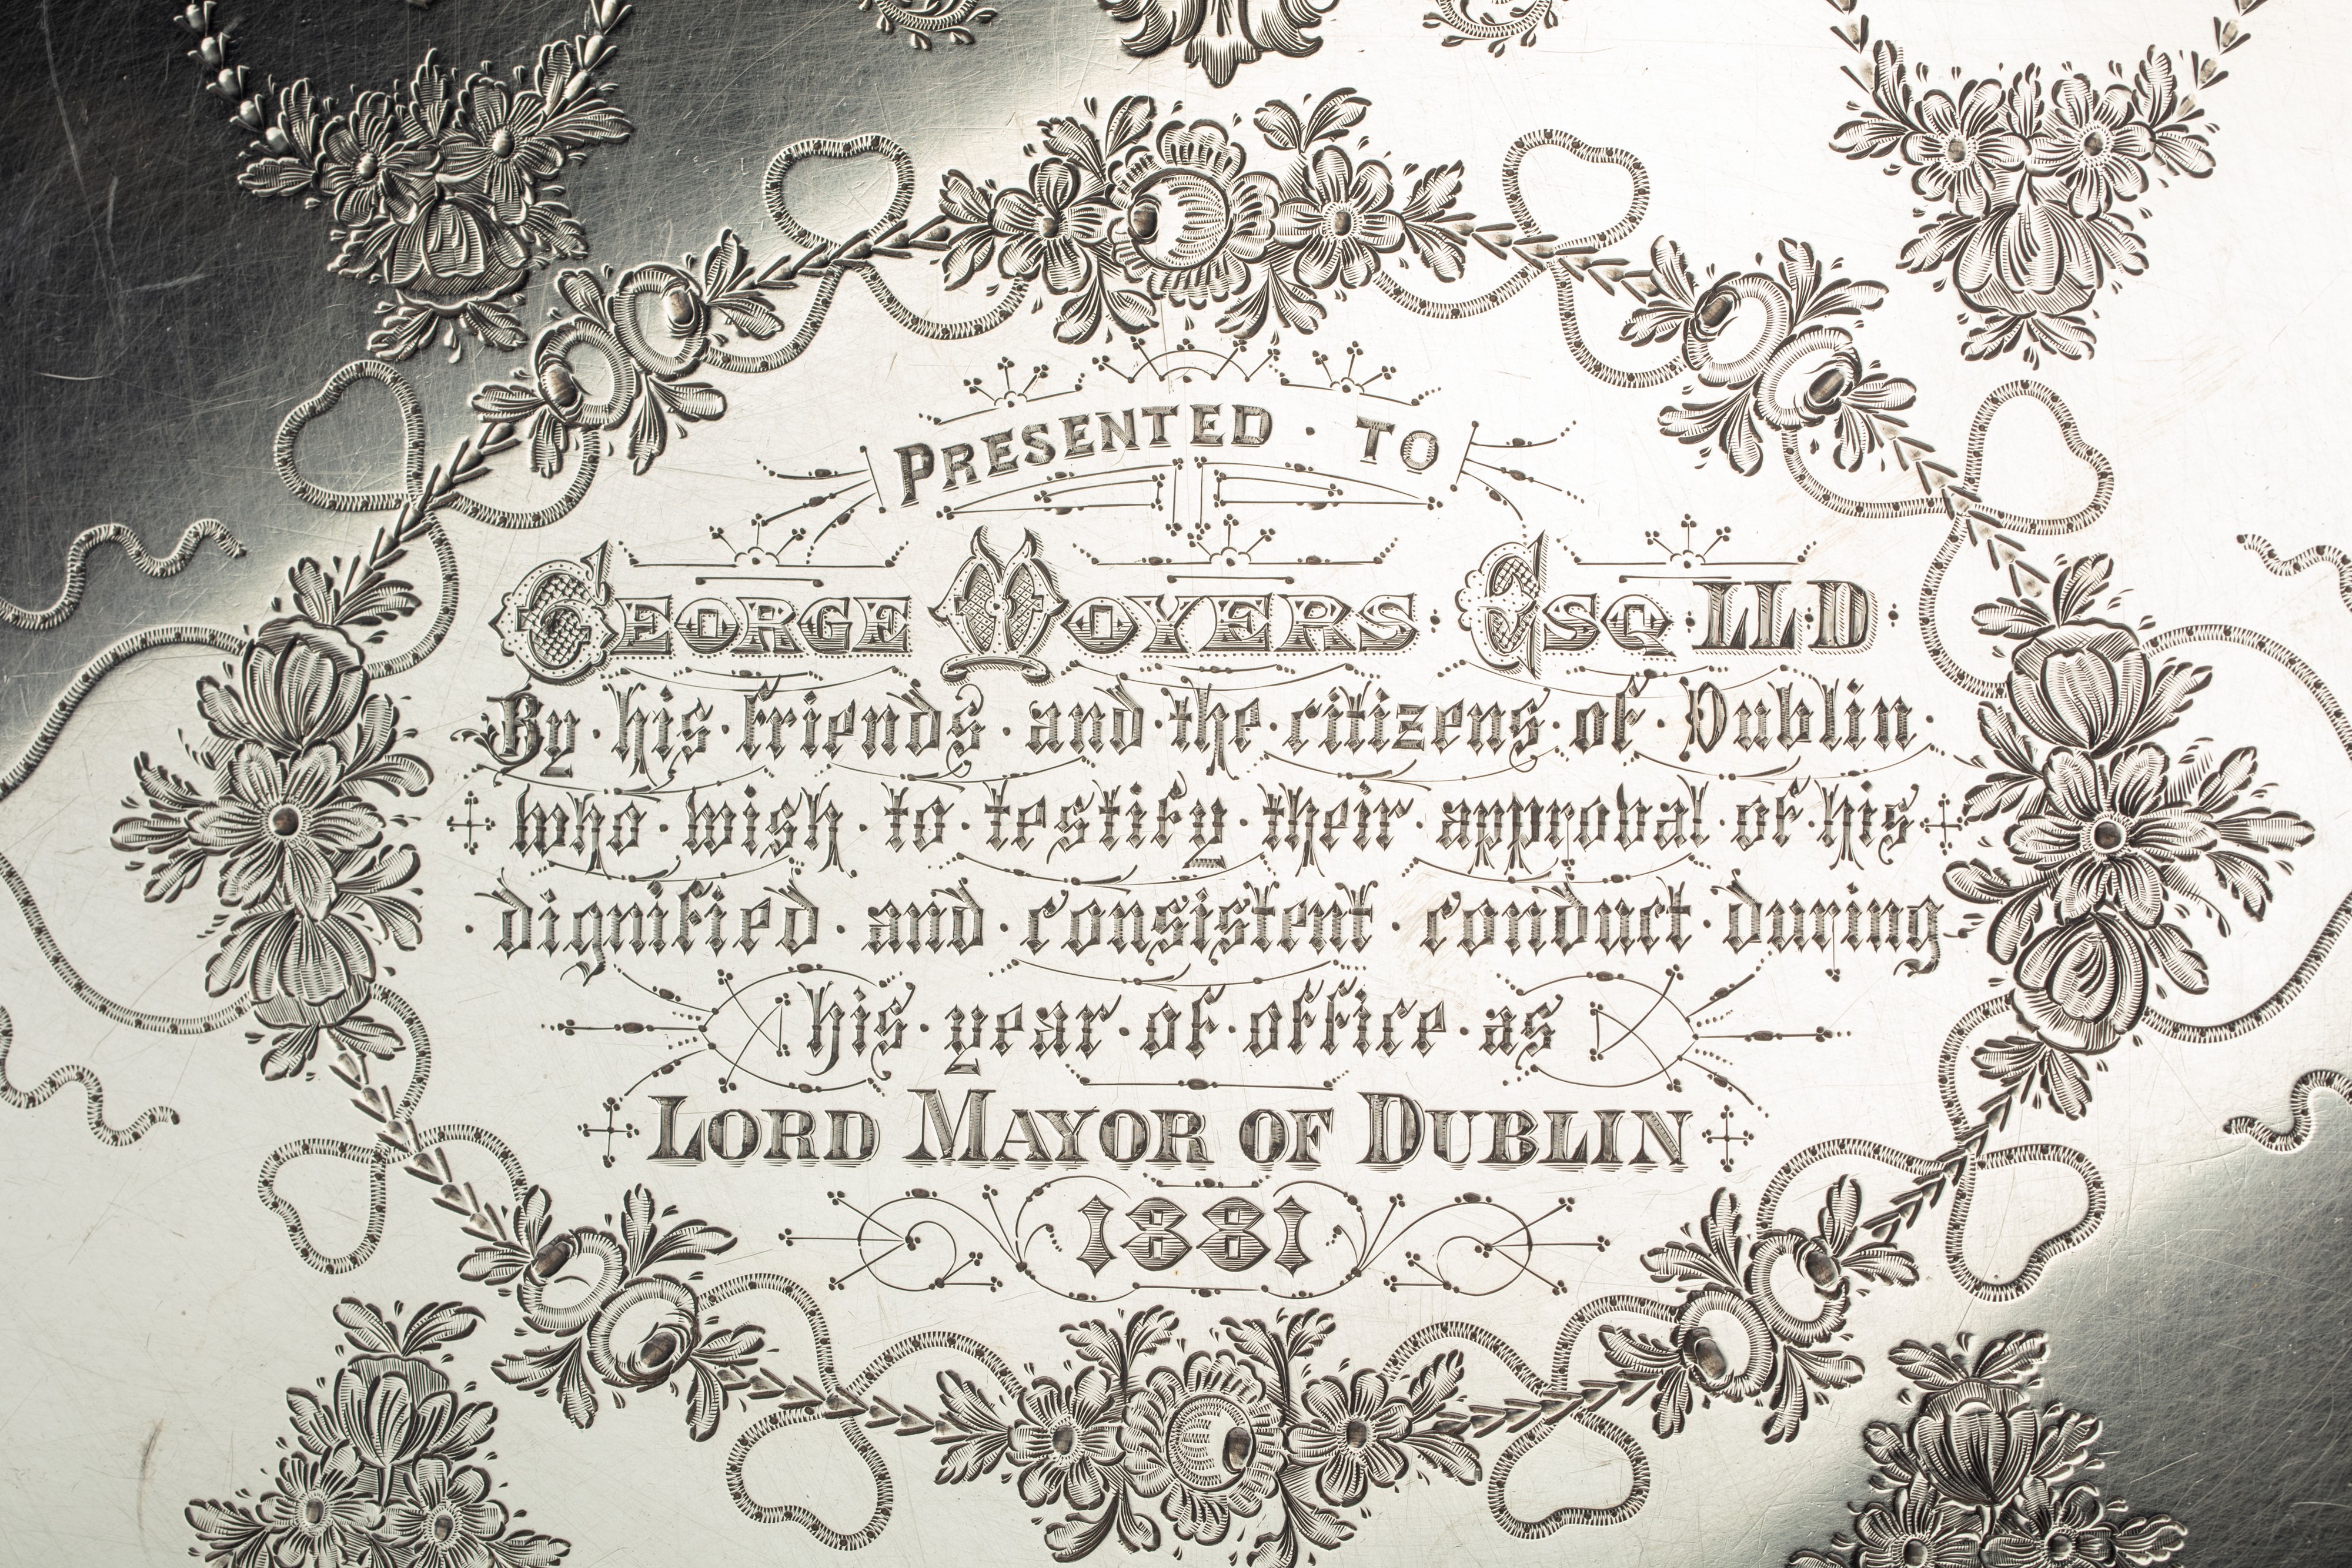 PRESENTED · TO
GEORGE MOYERS · ESQ · LL·D ·
By · his · friends · and · the · citizens · of · Dublin ·
who · wish · to · testify · their · approval · of · his
· dignified · and · consistent · conduct · during
his · year · of · office · as
LORD MAYOR OF DUBLIN
1881